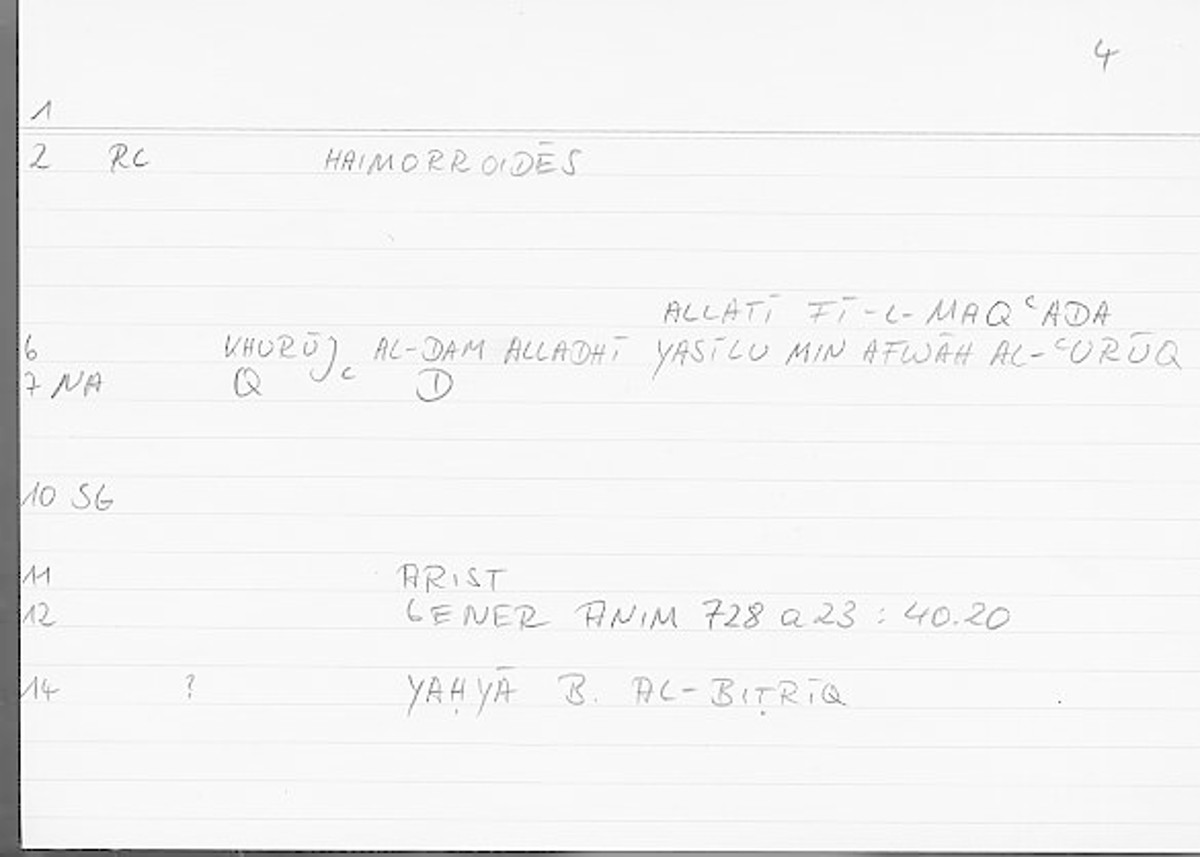 4
1
2 RC HAIMORROIDĒS
ALLATĪ FĪ-L-MAQʿADA
6 KHURŪJ AL-DAM ALLADHĪ YASĪLU MIN AFWĀH AL-ʿURŪQ
7 NA Q C D
10 SG
11 ARIST
12 GENER ANIM 728 a 23 : 40.20
14 ? YAḤYĀ B. AL-BIṬRĪQ